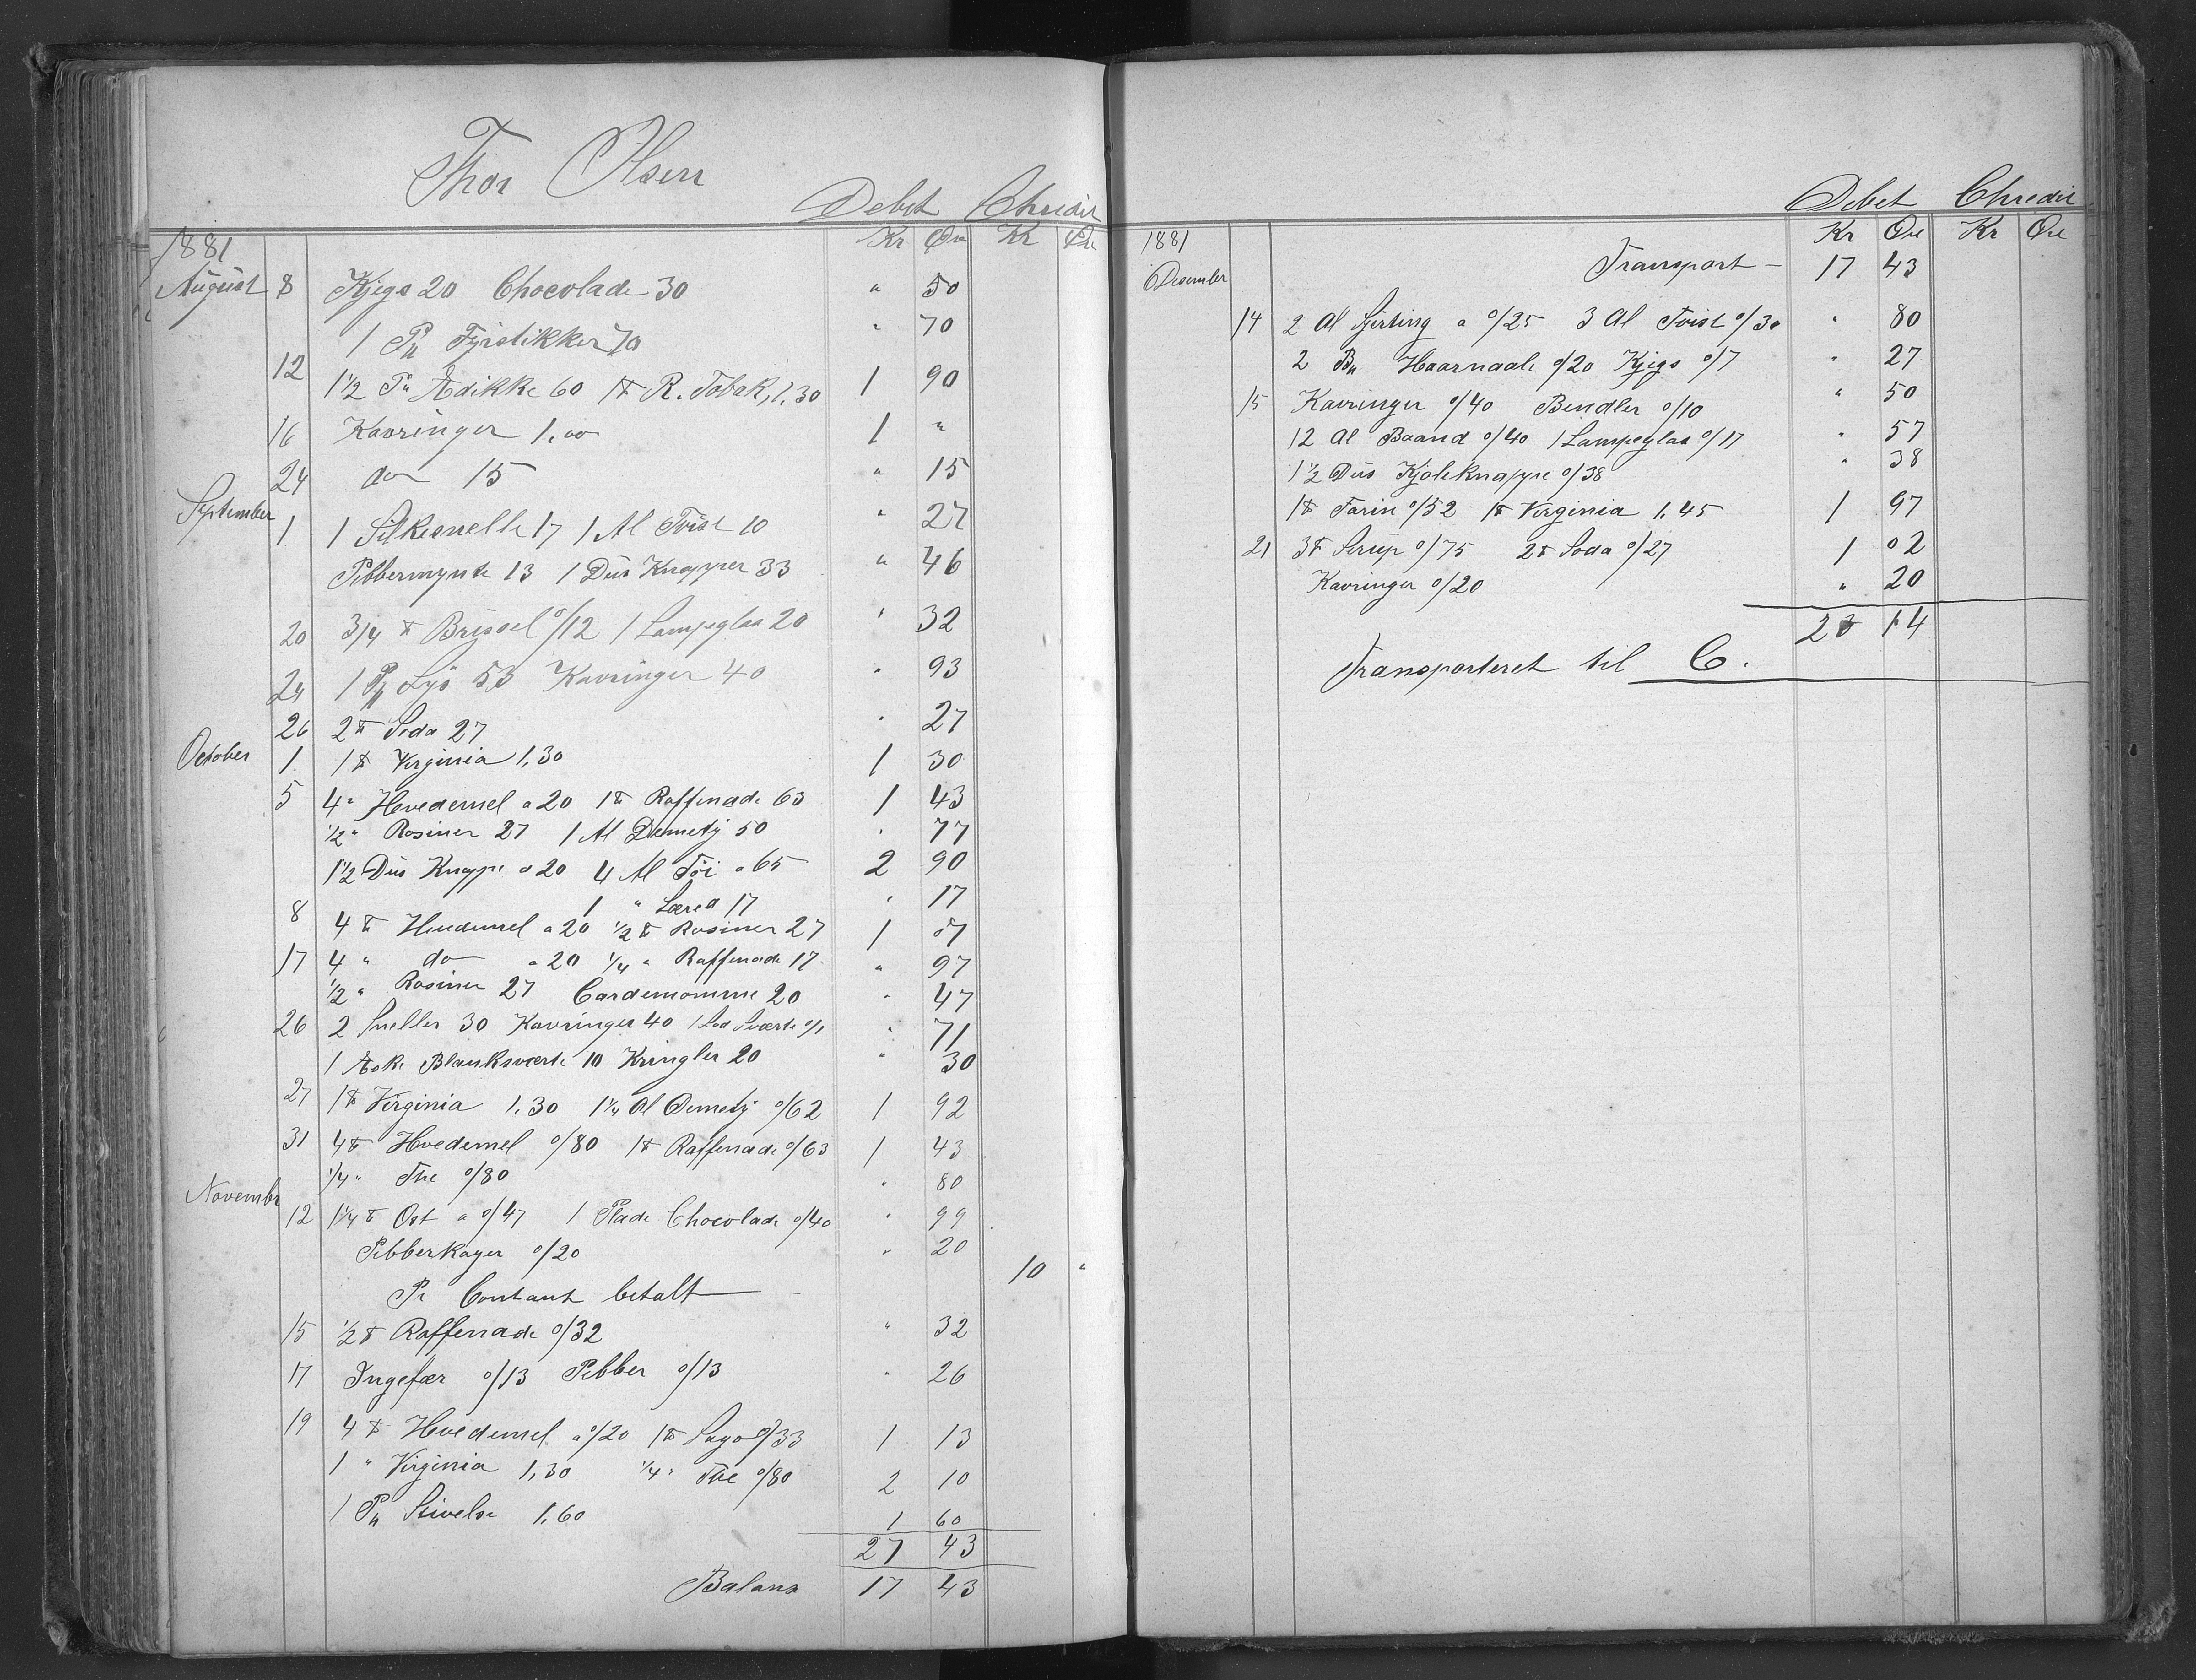 Thor Olsen
Debet Chredit
1881 Kr Øre Kr Øre
August 8 Kjegs 20 Chocolade 30 " 50
1 Pk Fyrstikker 70 " 70
12 1 1/2 Pk Ædikke 60 1 ℔ R. Tobak, 1,30 1 90
16 Kavringer 1,00 1 "
24 do 15 " 15
September 1 1 Silkesnelle 17 1 Al Tvist 10 " 27
Pibbermynte 13 1 Dus Knapper 33 " 46
20 3/4 ℔ Brissel o/12 1 Lampeglas 20 " 32
24 1 Pk Lys 53 Kavringer 40 " 93
26 2 ℔ Soda 27 " 27
October 1 1 ℔ Virginia 1,30 1 30
5 4 " Hvedemel a 20 1 ℔ Raffenade 63 1 43
1/2 " Rosiner 27 1 Al Demety 50 " 77
1 1/2 Dus Knappe a 20 4 Al Töi a 65 2 90
1 " Læred 17 " 17
8 4 ℔ Hvedemel a 20 1/2 ℔ Rosiner 27 1 07
17 4 " do a 20 1/4 " Raffenade 17 " 97
1/2 " Rosiner 27 Cardemomme 20 " 47
26 2 Sneller 30 Kavringer 40 1 Lod Sværte o/1 " 71
1 Æske Blanksværte 10 Kringler 20 " 30
27 1 ℔ Virginia 1,30 1 1/4 Al Demety o/62 1 92
31 4 ℔ Hvedemel o/80 1 ℔ Raffenade o/63 1 43
1/4 " The o/80 " 80
Novembr 12 1 1/4 ℔ Ost a o/47 1 Plade Chocolade o/40 " 99
Pibberkager o/20 " 20
Pr Contant betalt 10 "
15 1/2 ℔ Raffenade o/32 " 32
17 Ingefær o/13 Pibber o/13 " 26
19 4 ℔ Hvedemel a o/20 1 ℔ Sago o/33 1 13
1 " Virginia 1,30 1/4 " The o/80 2 10
1 Pk Stivelse 1,60 1 60
27 43
Balans 17 43
Debet Chredit
1881 Kr Øre Kr Øre
Desember Transport 17 43
14 2 Al Sjerting a o/25 3 Al Tvist o/30 " 80
2 Bk Haarnaale o/20 Kjegs o/7 " 27
15 Kavringer o/40 Bendler o/10 " 50
12 Al Baand o/40 1 Lampeglas o/17 " 57
1 1/2 Dus Kjoleknappe o/38 " 38
1 ℔ Farin o/52 1 ℔ Virginia 1,45 1 97
21 3 ℔ Sirup o/75 2 ℔ Soda o/27 1 02
Kavringer o/20 " 20
23 14
Transporteret til C.